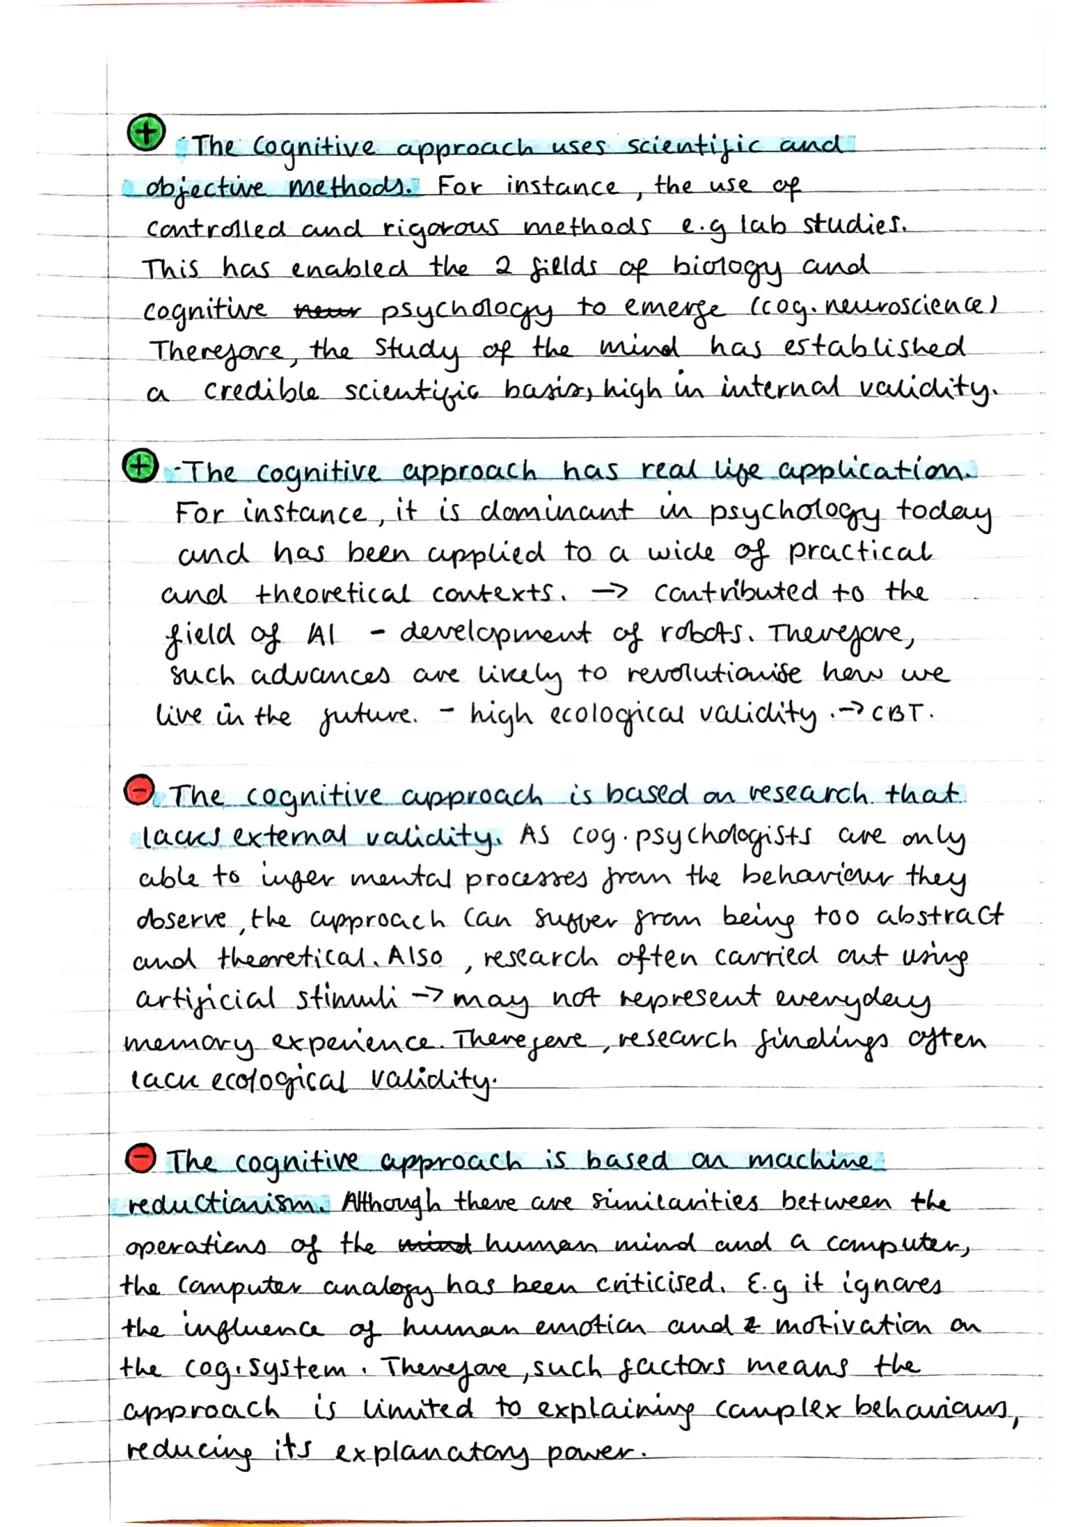 + -The Cognitive approach uses scientific and
objective methods. For instance, the use of
controlled and rigorous methods e.g lab studies.
This has enabled the 2 fields of biology and
cognitive neur psychology to emerge (cog. neuroscience)
Therefore, the study of the mind has established
a credible scientific basis, high in internal validity.
+ -The cognitive approach has real life application.
For instance, it is dominant in psychology today
and has been applied to a wide of practical
and theoretical contexts. → contributed to the
field of AI - development of robots. Therefore,
such advances are likely to revolutionise how we
live in the future. - high ecological validity. → CBT.
- The cognitive approach is based on research that
lacks external validity. As cog. psychologists are only
able to infer mental processes from the behaviour they
observe, the approach can suffer from being too abstract
and theoretical. Also, research often carried out using
artificial stimuli → may not represent everyday
memory experience. Therefore, research findings often
lack ecological validity.
- The cognitive approach is based on machine
reductionism. Although there are similarities between the
operations of the mind human mind and a computer,
the computer analogy has been criticised. E.g it ignores
the influence of human emotion and motivation on
the cog. system. Therefore, such factors means the
approach is limited to explaining complex behaviours,
reducing its explanatory power.